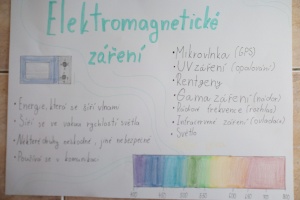 Elektromagnetické
záření
• Mikrovlnka (GPS)
• UV záření (opalování)
• Rentgeny
• Gama záření
• Rádiové frekvence
• Infračervené záření
• Světlo
• Energie, která se šíří vlnami
• Šíří se ve vakuu rychlostí světla
• Některé druhy neškodné, jiné nebezpečné
• Používá se v komunikaci